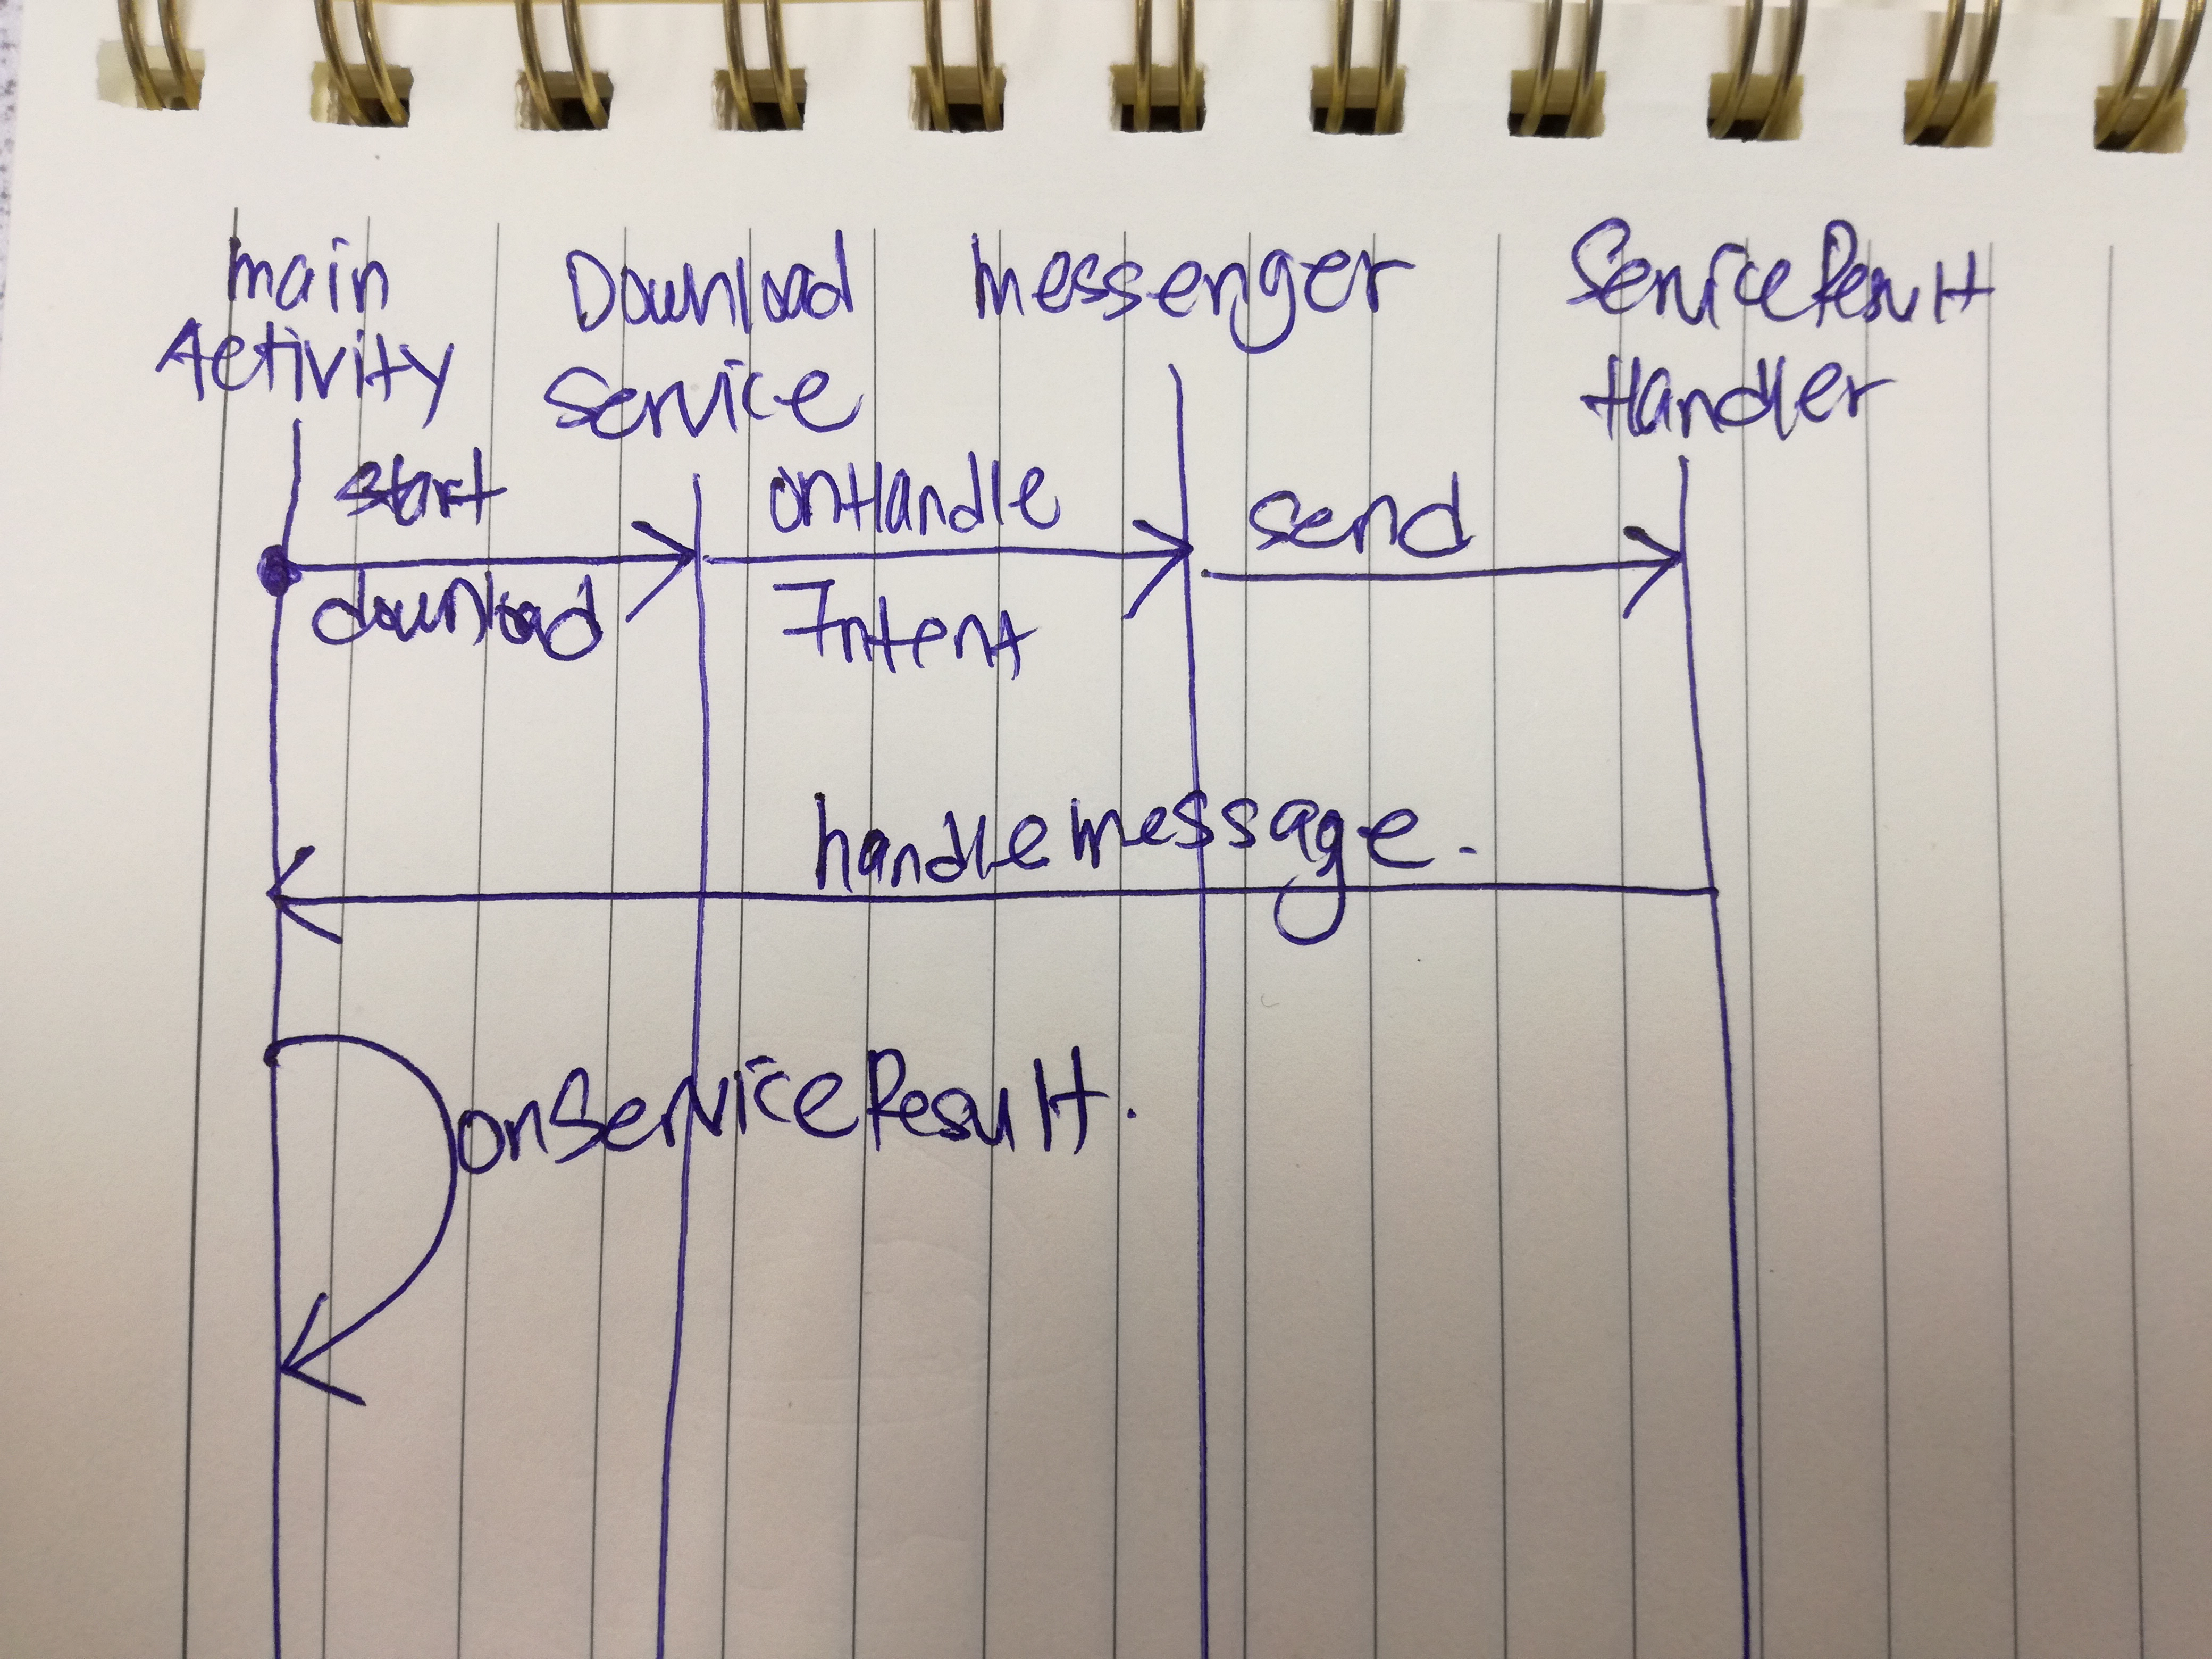 main
Activity
Download
Service
messenger
ServiceResult
Handler
start
download
onHandle
Intent
send
handlemessage.
onServiceResult.